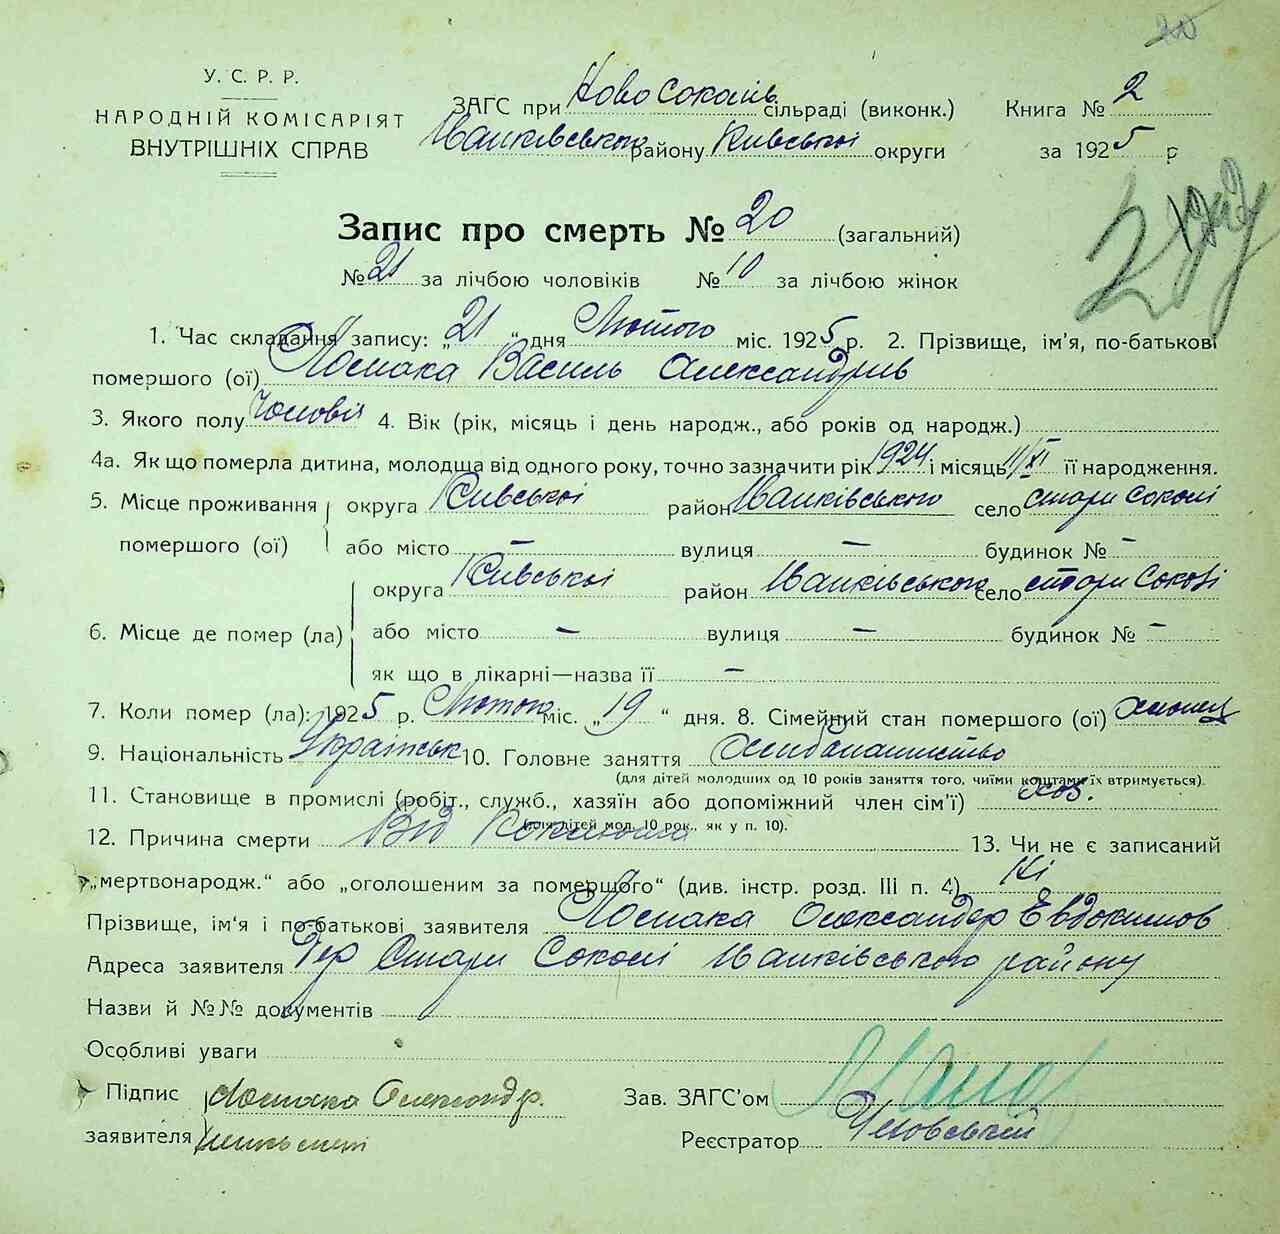 У. С. Р. Р.
НАРОДНІЙ КОМІСАРІЯТ
ВНУТРІШНІХ СПРАВ
ЗАГС при Ново Сокаль сільраді (виконк.)
Іванківського району Київської округи
Книга № 2
за 1925 р
Запис про смерть № 20 (загальний)
№ 21 за лічбою чоловіків № 10 за лічбою жінок
1. Час складання запису: „21“ дня Лютого міс. 1925 р. 2. Прізвище, ім'я, по-батькові
помершого (ої) Ломака Василь Александрив
3. Якого полу 4. Вік (рік, місяць і день народж., або років од народж.)
4а. Як що померла дитина, молодша від одного року, точно зазначити рік 1924 і місяць 11/XI її народження.
5. Місце проживання округа Київської район Іванківського село Стари Соколі
помершого (ої) або місто – вулиця – будинок № –
округа Київської район Іванківського село Стари Соколі
6. Місце де помер (ла) або місто – вулиця – будинок № –
як що в лікарні—назва її –
7. Коли помер (ла): 1925 р. Лютого міс. „19“ дня. 8. Сімейний стан помершого (ої)
9. Національність Українськ 10. Головне заняття
(для дітей молодших од 10 років заняття того, чиїми коштами їх втримується).
11. Становище в промислі (робіт., служб., хазяїн або допоміжний член сім'ї)
(для дітей мол. 10 рок., як у п. 10).
12. Причина смерти Від 13. Чи не є записаний
„мертвонародж.“ або „оголошеним за помершого“ (див. інстр. розд. III п. 4) Ні
Прізвище, ім'я і по-батькові заявителя Ломака Олександер Евдокимов
Адреса заявителя Дер Стари Соколі Іванківського району
Назви й №№ документів
Особливі уваги
Підпис Ломака Олександр.
заявителя
Зав. ЗАГС'ом
Реєстратор